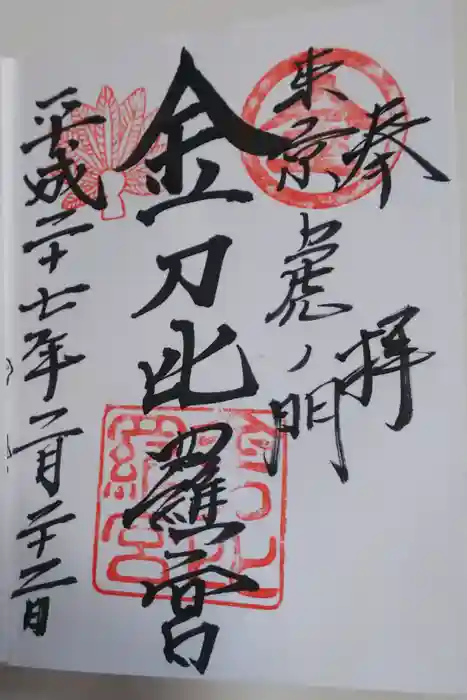 奉拝
東京虎ノ門
金刀比羅宮
平成二十七年二月二十二日
金刀比
羅宮